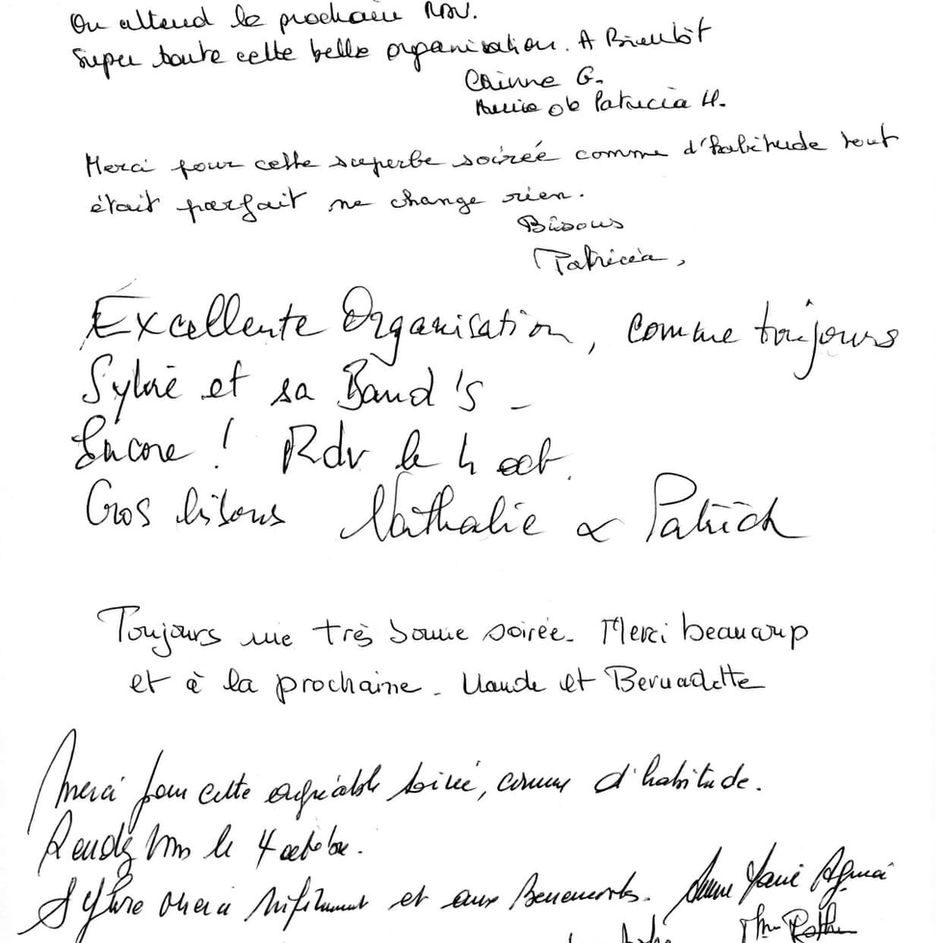 On attend le prochain RDV.
Super toute cette belle organisation. A Bientôt
Corinne G.
Patricia H.
Merci pour cette superbe soirée comme d'habitude tout
était parfait ne change rien.
Bisous
Patricia,
Excellente Organisation, comme toujours
Sylvie et sa Band's -
Encore ! Rdv le 4 oct.
Gros bisous Nathalie & Patrick
Toujours une très bonne soirée. Merci beaucoup
et à la prochaine. et Bernadette
Merci pour cette agréable soirée, comme d'habitude.
Rendez vous le 4 octobre.
Sylvie merci infiniment et aux Benevoles. Anne Marie
Mme